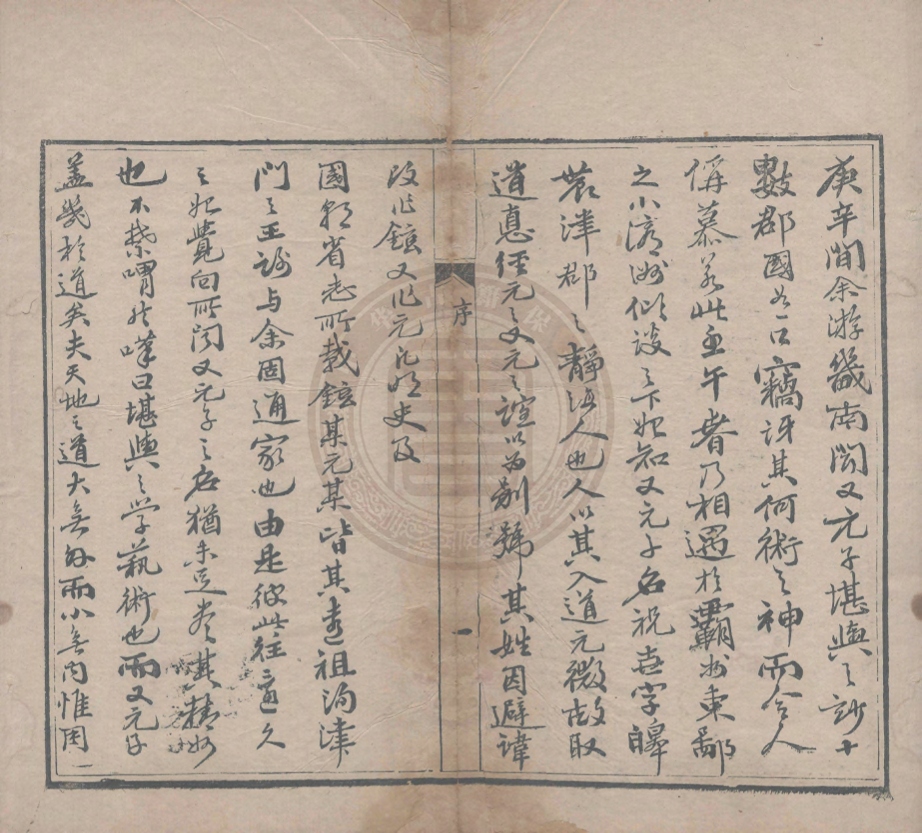 庚辛間余游畿南聞又元子堪輿之妙十
數郡國名口竊訝其何術之神而令人
偁慕若此至壬午春乃相遇於霸州東鄙
之小 傾談之下始知又元子名祝垚字皞
農津郡之靜海人也人以其入道元微故取
道惪經元之又元之誼以為別號其姓因避諱
改作鉉又作元 明史及
國朝省志所載鉉某元某皆其遠祖洵津
門之王謝与余固通家也由是彼此往還久
之始覺向所聞又元子之名猶未足盡其精妙
也不禁喟然嘆曰堪輿之學藝術也而又元子
蓋幾於道矣夫天地之道大無外而小無內惟因
序
一